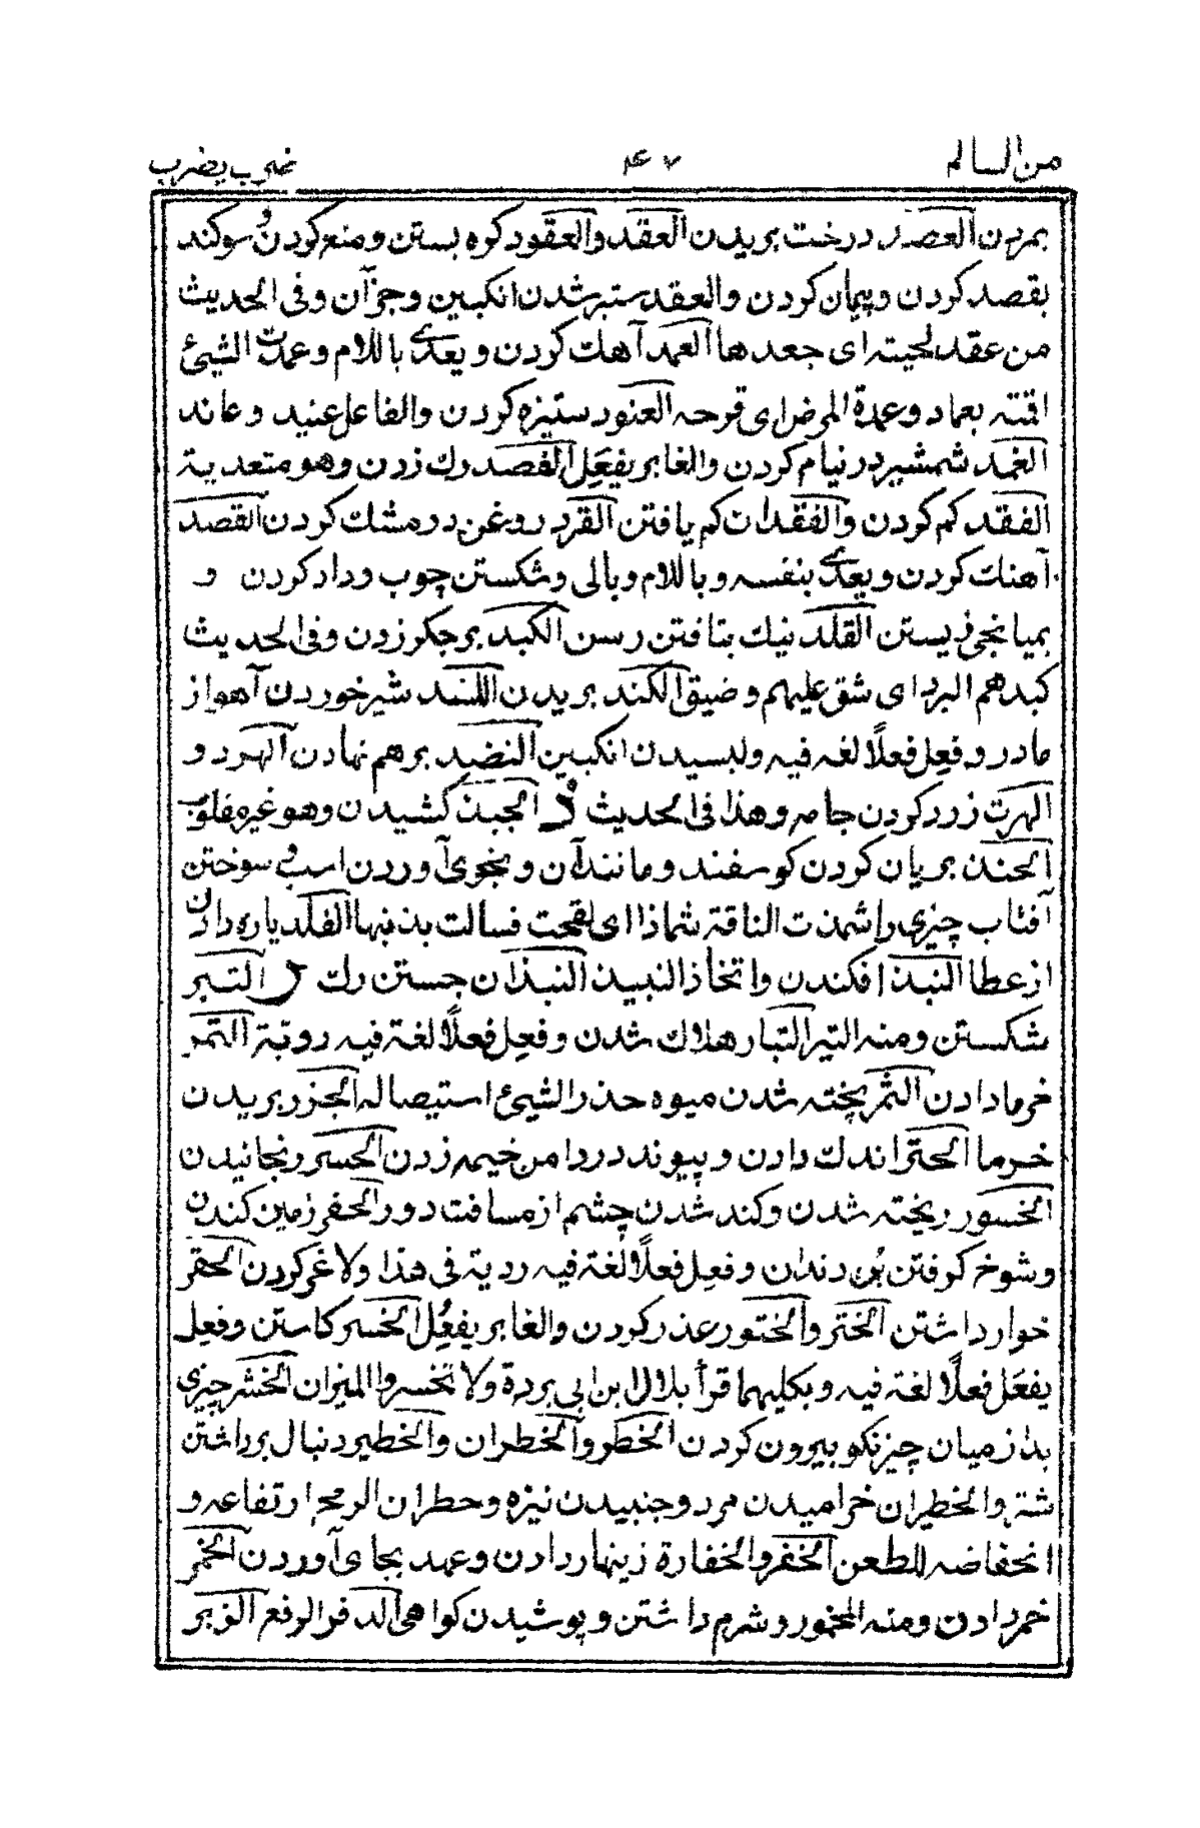 من السالم ۴۷ ضرب یضرب
بمردن العضد درخت بریدن العقد والعقود کره بستن ومنعر کردن و سوکند
بقصد کردن وپیمان کردن والعقد ستبر شدن انکبین وجزآن وفی الحدیث
من عقد لحیته ای جعدها العمد آهنك کردن ویعدی باللام وعمدت الشیئ
اقمته بعماد وعمدة المرض ای قرحه العنود ستیزه کردن والفاعل عنید وعاند
الغمد شمشیر در نیام کردن والغابر یفعل الفصد رك زدن وهو متعدیة
الفقد کم کردن والفقدان کم یافتن القرد روغن در مشك کردن القصد
آهنك کردن ویعدی بنفسه وباللام وبالی وشکستن چوب وداد کردن و
بمیانجی زیستن القلد نیك بتافتن رسن الکبد برجکر زدن وفی الحدیث
کبدهم البرد ای شق علیهم وضیق الکند بریدن اللسد شیر خوردن آهو از
مادر وفعل فعلًا لغه فیه ولیسیدن انکبین النضید برهم نهادن الهرد و
الهرت زرد کردن جامه وهذا فی الحدیث ذ الجبذ کشیدن وهو غیر مقلوب
الحنذ بریان کردن کوسفند ومانند آن وبخوی آوردن اسب و سوختن
آفتاب چیزی را شمذت الناقة شماذا ای لقحت فسالت بذنبها الفلذ پاره دادن
از عطا النبذ افکندن واتخاذ النبیذ النبذان جستن رك ر التبر
شکستن ومنه التبر التبار هلاك شدن وفعل فعلًا لغة فیه رویة التمر
خرما دادن الثمر پخته شدن میوه جذر الشیئ استیصاله الجزر بریدن
خرما الحتر اندك دادن وپیوند در دامن خیمه زدن الحسر رنجانیدن
الحسور ریخته شدن وکند شدن چشم از مسافت دور الحفر زمین کندن
وشوخ کرفتن بن دندان وفعل فعلًا لغة فیه ردیة فی هذا ولاغر کردن الحقر
خوار داشتن الختر والختور عذر کردن والغابر یفعل الخسر کاستن وفعل
یفعل فعلًا لغة فیه وبکلیهما قرأ بلال بن ابی بردة ولا تخسروا المیزان الخشر چیزی
بد از میان چیز نکو بیرون کردن الخطر والخطران والخطیر دنبال برداشتن
شتر والخطیران خرامیدن مرد وجنبیدن نیزه وخطران الرمح ارتفاعه و
انخفاضه للطعن الخفر والخفارة زینهار دادن وعهد بجای آوردن الخمر
خمر دادن ومنه المخمور وشرم داشتن وپوشیدن کواهی الدفر الرفع الزبر